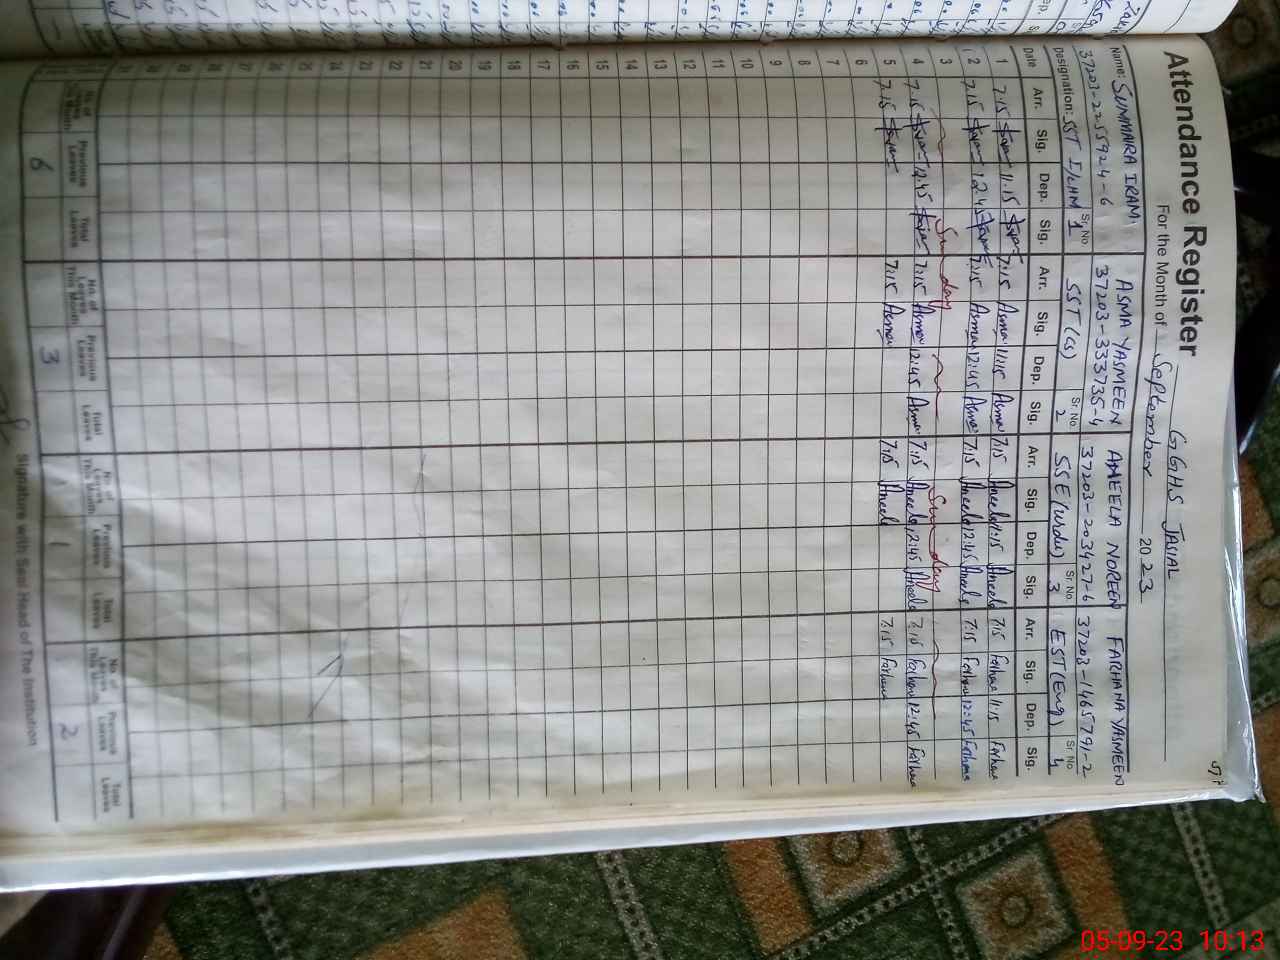 Attendance Register GGHS JASIAL
For the Month of September 2023
Name: SUMMAIRA IRAM ASMA YASMEEN ANEELA NOREEN FARHANA YASMEEN
37203-2255924-6 37203-333735-4 37203-203427-6 37203-1465791-2
Designation: SST I/c HM Sr. No. 1 SST (CS) Sr. No. 2 SSE (Urdu) Sr. No. 3 EST (Eng) Sr. No. 4
Date Arr. Sig. Dep. Sig. Arr. Sig. Dep. Sig. Arr. Sig. Dep. Sig. Arr. Sig. Dep. Sig.
1 7:15 11:15 7:15 Asma 11:15 Asma 7:15 Aneela 11:15 Aneela 7:15 Farhana 11:15 Farhana
2 7:15 12:45 7:15 Asma 12:45 Asma 7:15 Aneela 12:45 Aneela 7:15 Farhana 12:45 Farhana
3 Sunday Sunday
4 7:15 12:45 7:15 Asma 12:45 Asma 7:15 Aneela 12:45 Aneela 7:15 Farhana 12:45 Farhana
5 7:15 7:15 Asma 7:15 Aneela 7:15 Farhana
6
7
8
9
10
11
12
13
14
15
16
17
18
19
20
21
22
23
24
25
26
27
28
29
30
31
No. of Leaves This Month Previous Leaves Total Leaves No. of Leaves This Month Previous Leaves Total Leaves No. of Leaves This Month Previous Leaves Total Leaves No. of Leaves This Month Previous Leaves Total Leaves
6 3 1 2
Signature with Seal Head of The Institution
05-09-23 10:13